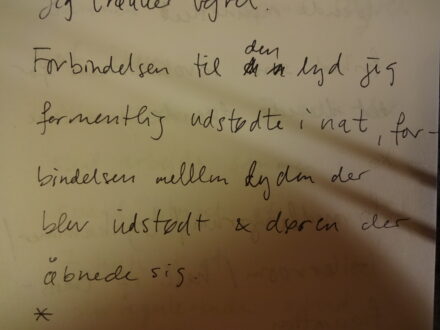 jeg træder vejret.
Forbindelsen til den lyd jeg
formentlig udstødte i nat, for-
bindelsen mellem lyden der
blev udstødt & døren der
åbnede sig.
*